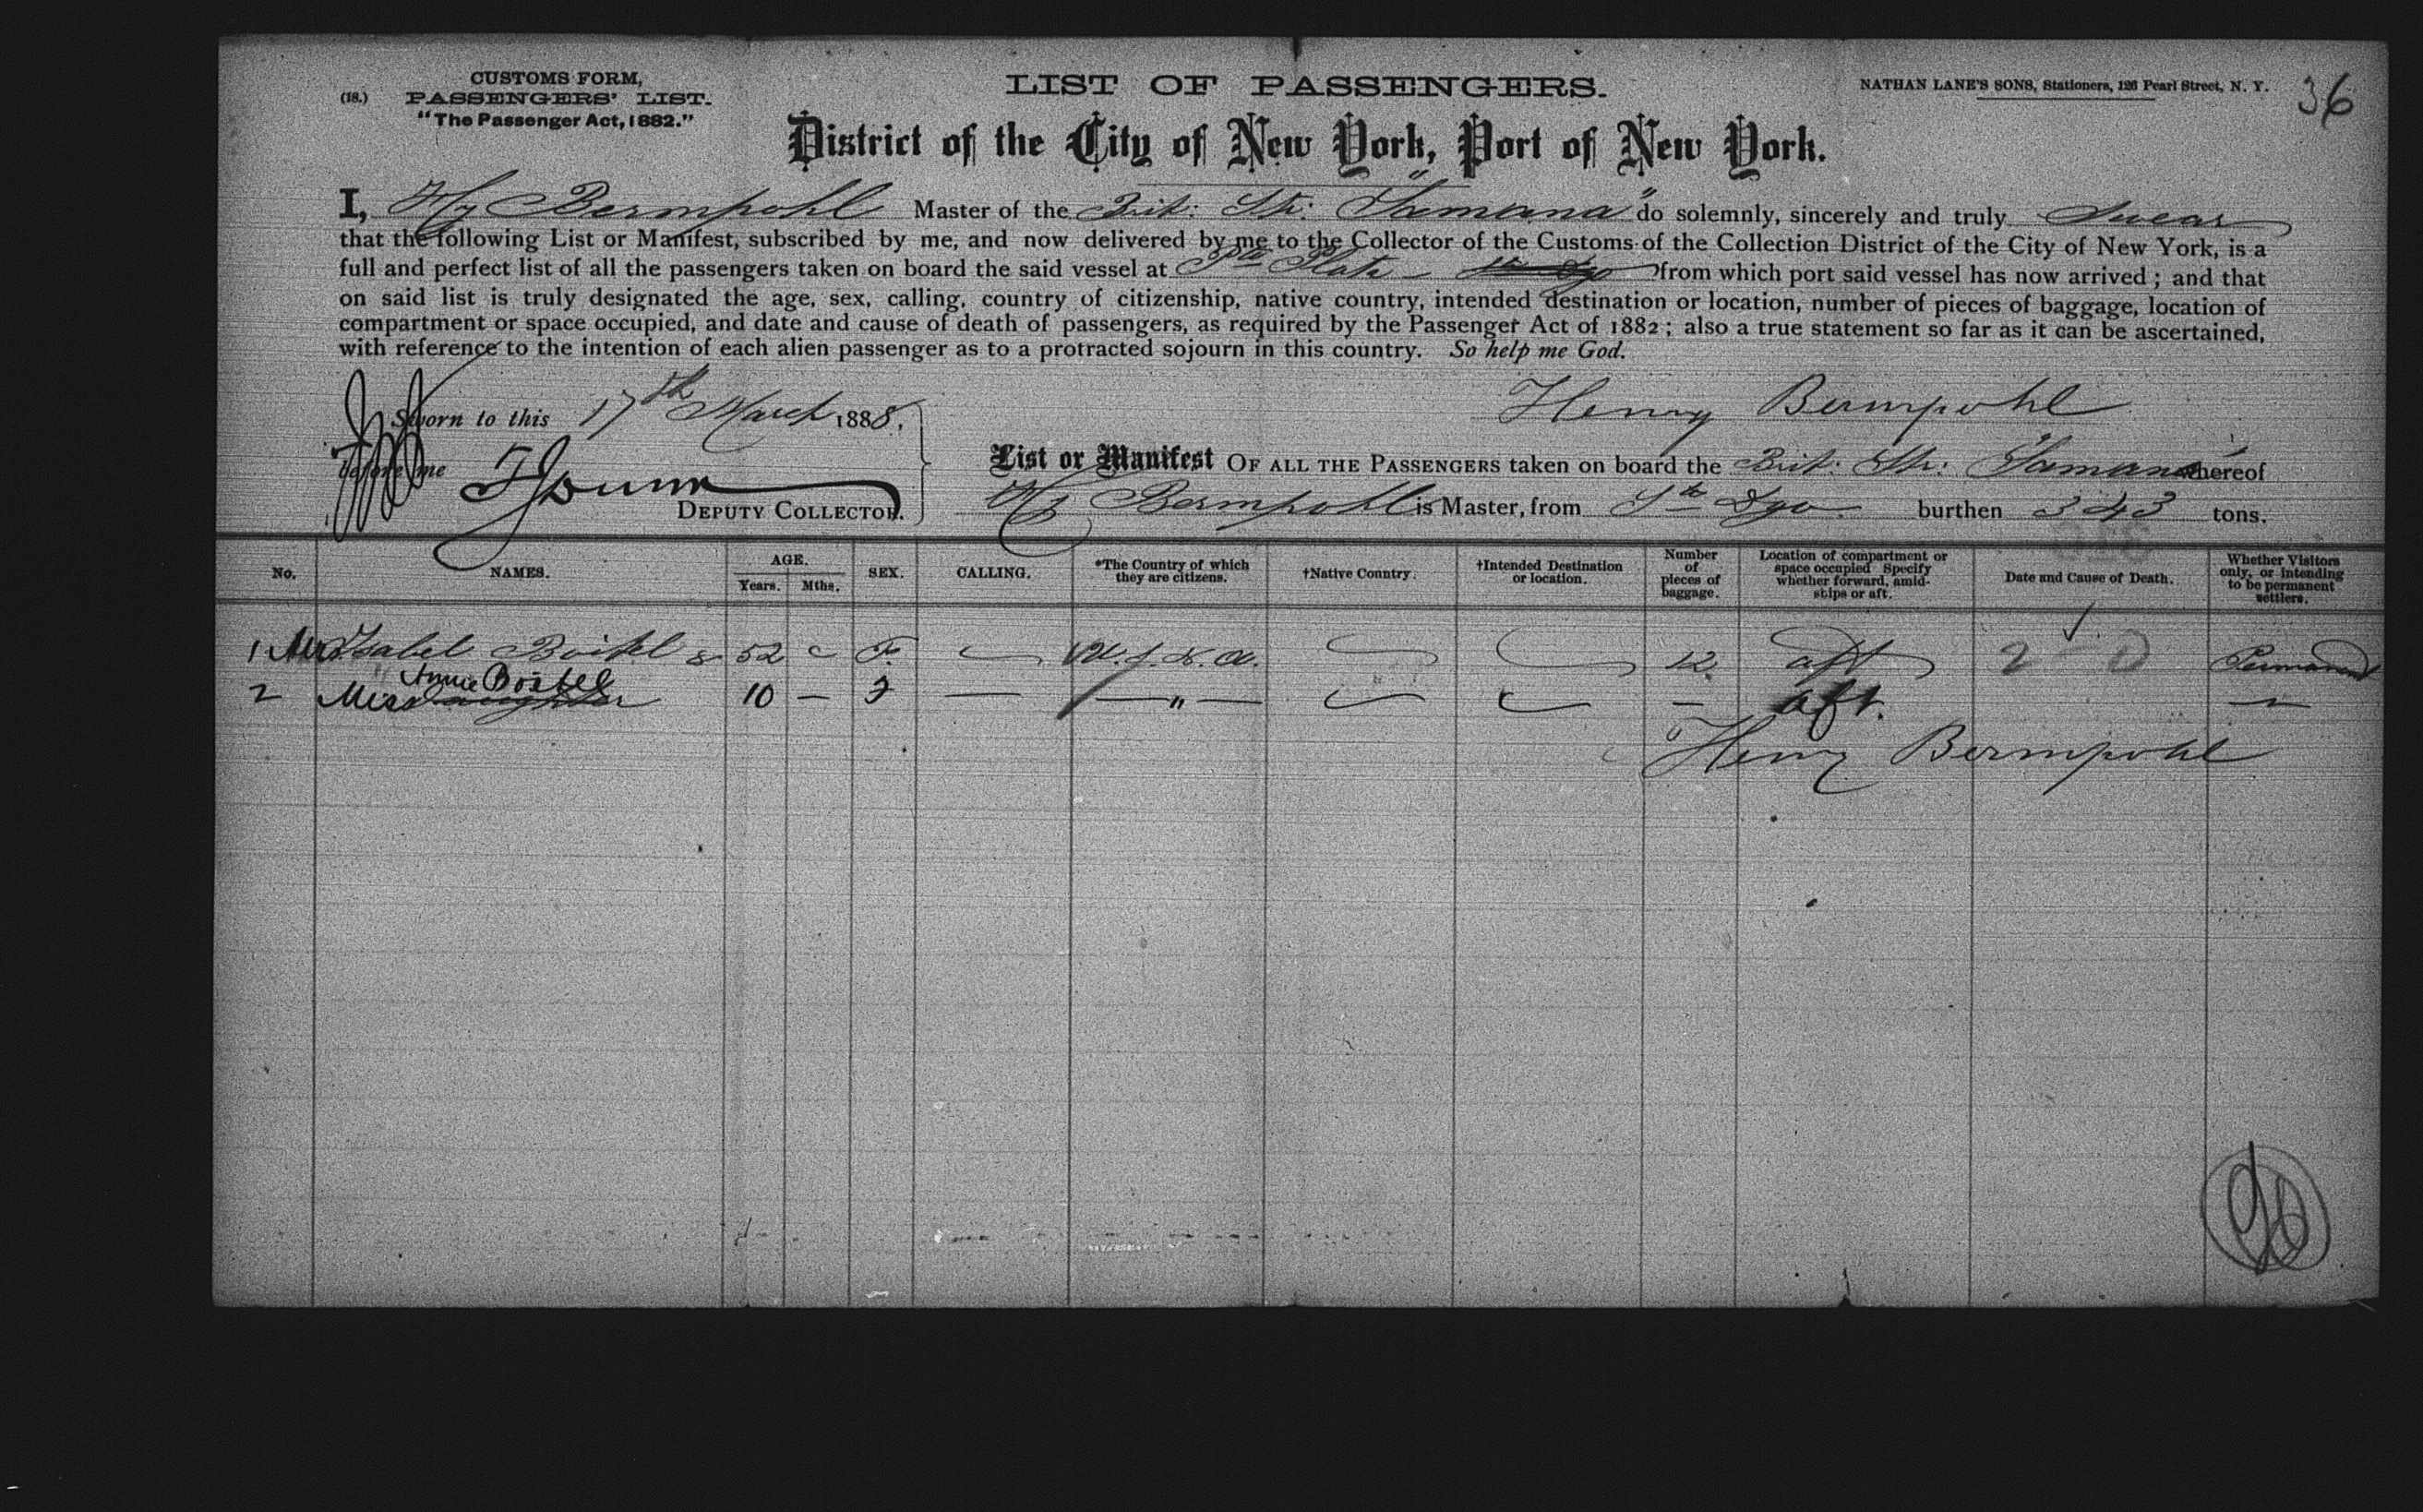 CUSTOMS FORM,
(18.) PASSENGERS' LIST.
"The Passenger Act, 1882."
LIST OF PASSENGERS.
NATHAN LANE'S SONS, Stationers, 126 Pearl Street, N. Y.
36
District of the City of New York, Port of New York.
I, Hy Bermpohl Master of the Brit: Str: "Samana" do solemnly, sincerely and truly Swear
that the following List or Manifest, subscribed by me, and now delivered by me to the Collector of the Customs of the Collection District of the City of New York, is a
full and perfect list of all the passengers taken on board the said vessel at Pto Plata from which port said vessel has now arrived; and that
on said list is truly designated the age, sex, calling, country of citizenship, native country, intended destination or location, number of pieces of baggage, location of
compartment or space occupied, and date and cause of death of passengers, as required by the Passenger Act of 1882; also a true statement so far as it can be ascertained,
with reference to the intention of each alien passenger as to a protracted sojourn in this country. So help me God.
Sworn to this 17th March 1888,
Henry Bermpohl
before me
DEPUTY COLLECTOR.
List or Manifest OF ALL THE PASSENGERS taken on board the Brit. Str: "Samana" whereof
Hy Bermpohl is Master, from Sto Dgo burthen 343 tons.
No. NAMES. AGE. Years. Mths. SEX. CALLING. *The Country of which they are citizens. †Native Country. †Intended Destination or location. Number of pieces of baggage. Location of compartment or space occupied Specify whether forward, amidships or aft. Date and Cause of Death. Whether Visitors only, or intending to be permanent settlers.
1 Mrs Isabel Boitel & 52 F. U.S.N.A. 12 aft 2 Permanent
2 Miss Annie Boitel 10 — F — " — — aft.
Henry Bermpohl